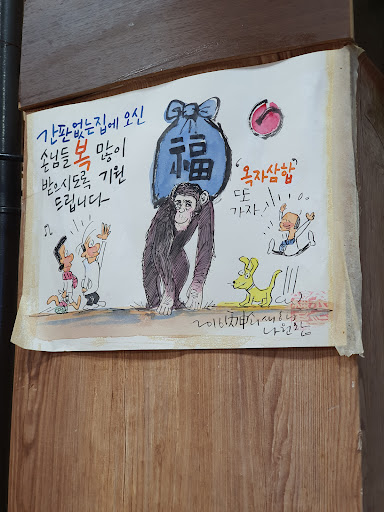 간판없는집에 오신
손님들 복 많이
받으시도록 기원
드립니다
福
"옥자삼합"
또
가자!